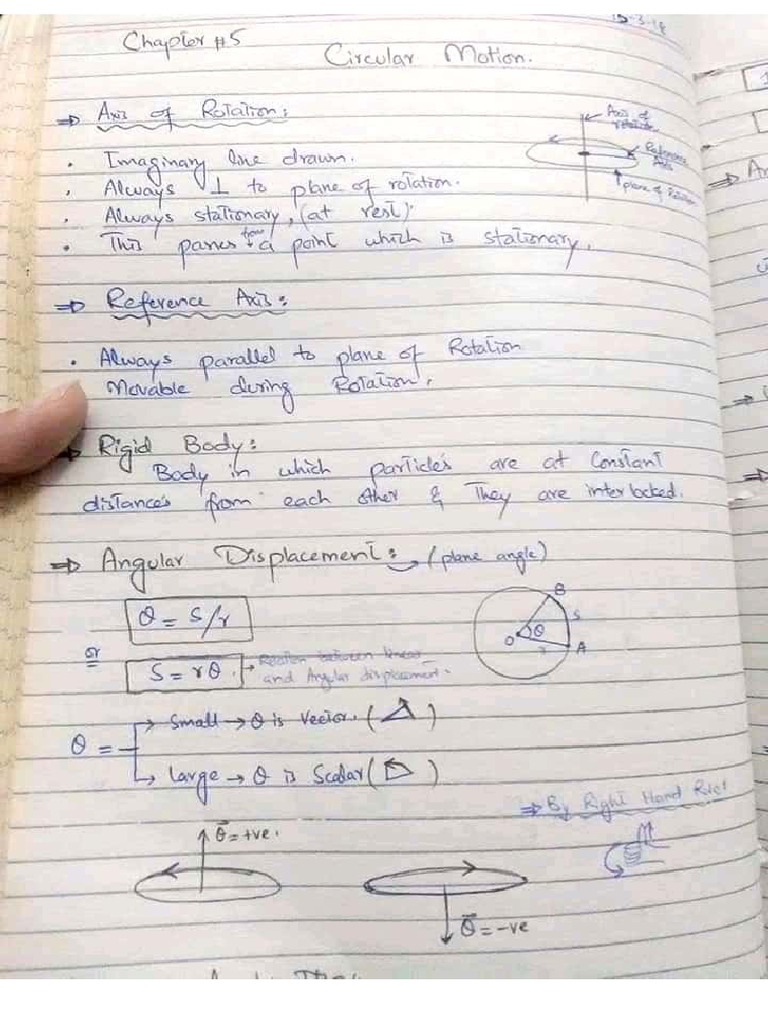 15-3-18
Chapter #5
Circular Motion.
⇒ Axis of Rotation:
Axis of
Reference
Axis
plane of Rotation
• Imaginary line drawn.
• Always ⊥ to plane of rotation.
• Always stationary, (at rest).
• This passes from a point which is stationary.
⇒ Reference Axis:
• Always parallel to plane of Rotation
Movable during Rotation.
⇒ Rigid Body:
Body in which particles are at Constant
distances from each other & They are interlocked.
⇒ Angular Displacement: (plane angle)
θ = S/r
or
S = rθ. → Relation between linear
and Angular displacement.
B
S
O θ
r A
θ = → Small → θ is Vector. ( )
→ Large → θ is Scalar ( )
⇒ By Right Hand Rule!
θ⃗ = +ve.
θ⃗ = -ve